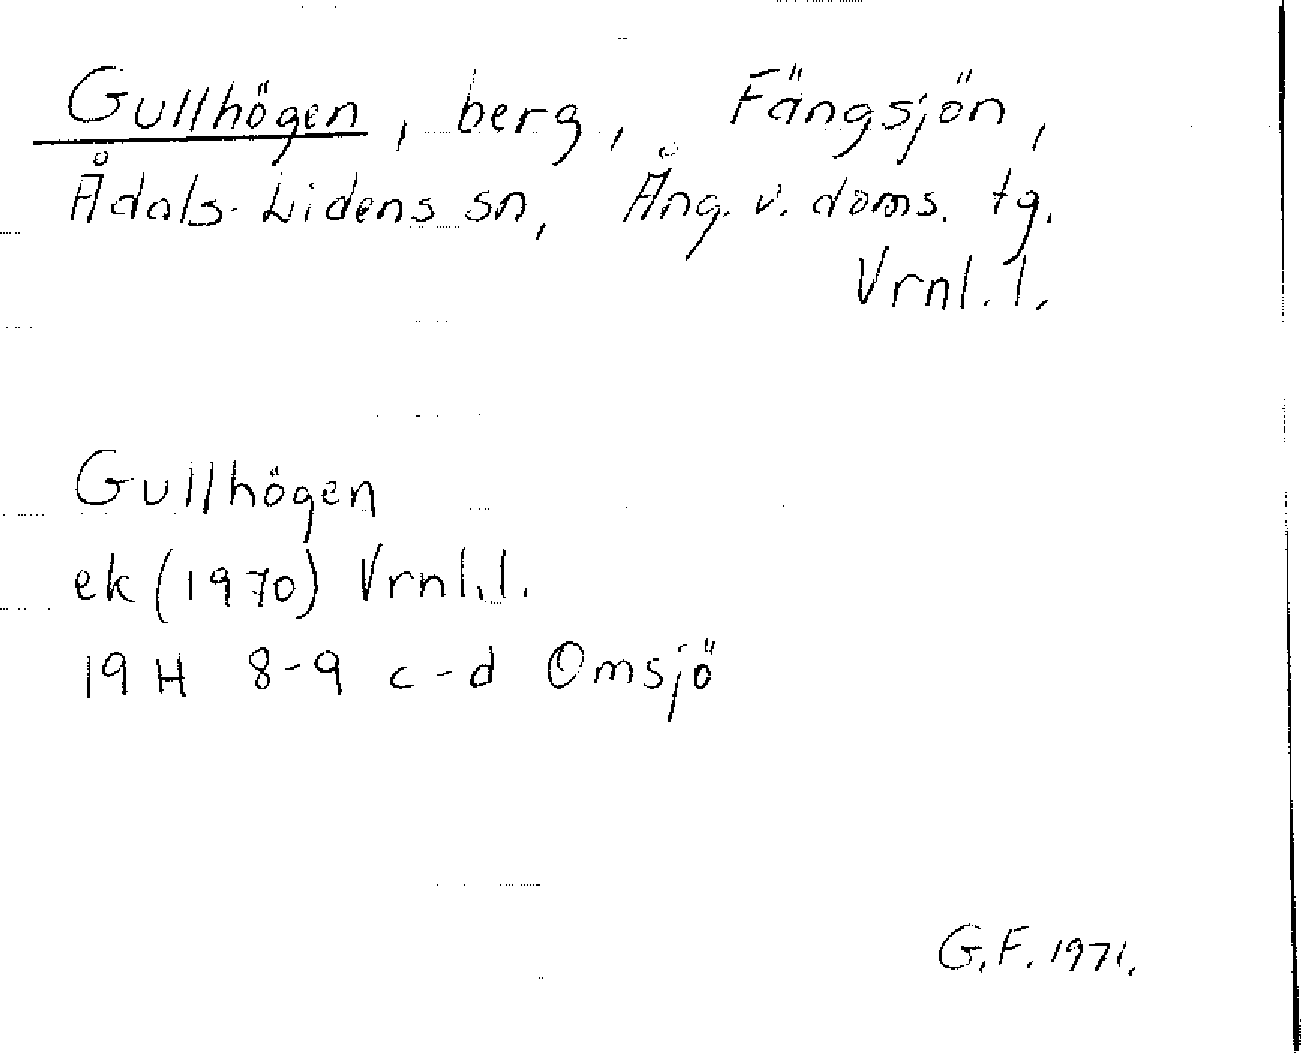 Gullhögen, berg, Fängsjön,
Ådals-Lidens sn, Ång. v. doms. tg.
Vrnl. l.
Gullhögen
ek (1970) Vrnl. l.
19 H 8-9 c-d Omsjö
G.F. 1971.